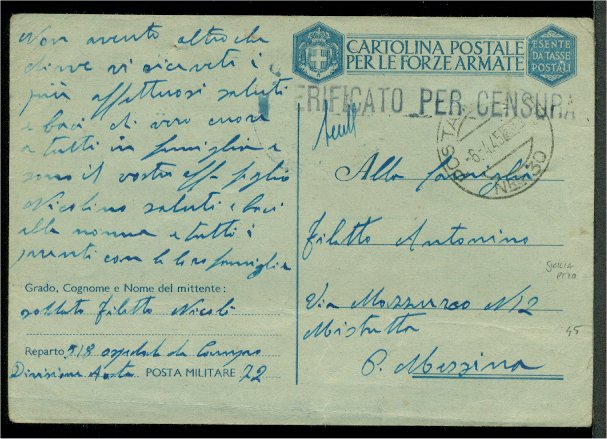 Non avento altro che
dirve vi riceveti i
più affettuosi saluti
e baci di vero cuore
a tutti in famiglia e
sono il vostro aff figlio
Nicolino saluti e baci
alla nonna e tutti i
parenti con la loro famiglia
Grado, Cognome e Nome del mittente:
soldato Filetto Nicolò
Reparto 518 ospedale da Campo
Divisione Aosta POSTA MILITARE 22
CARTOLINA POSTALE
PER LE FORZE ARMATE
ESENTE
DA TASSE
POSTALI
VERIFICATO PER CENSURA
POSTA
Alla famiglia
Filetto Antonino
SICILIA
Via Mazzurco N 12
45
Mistretta
P. Messina